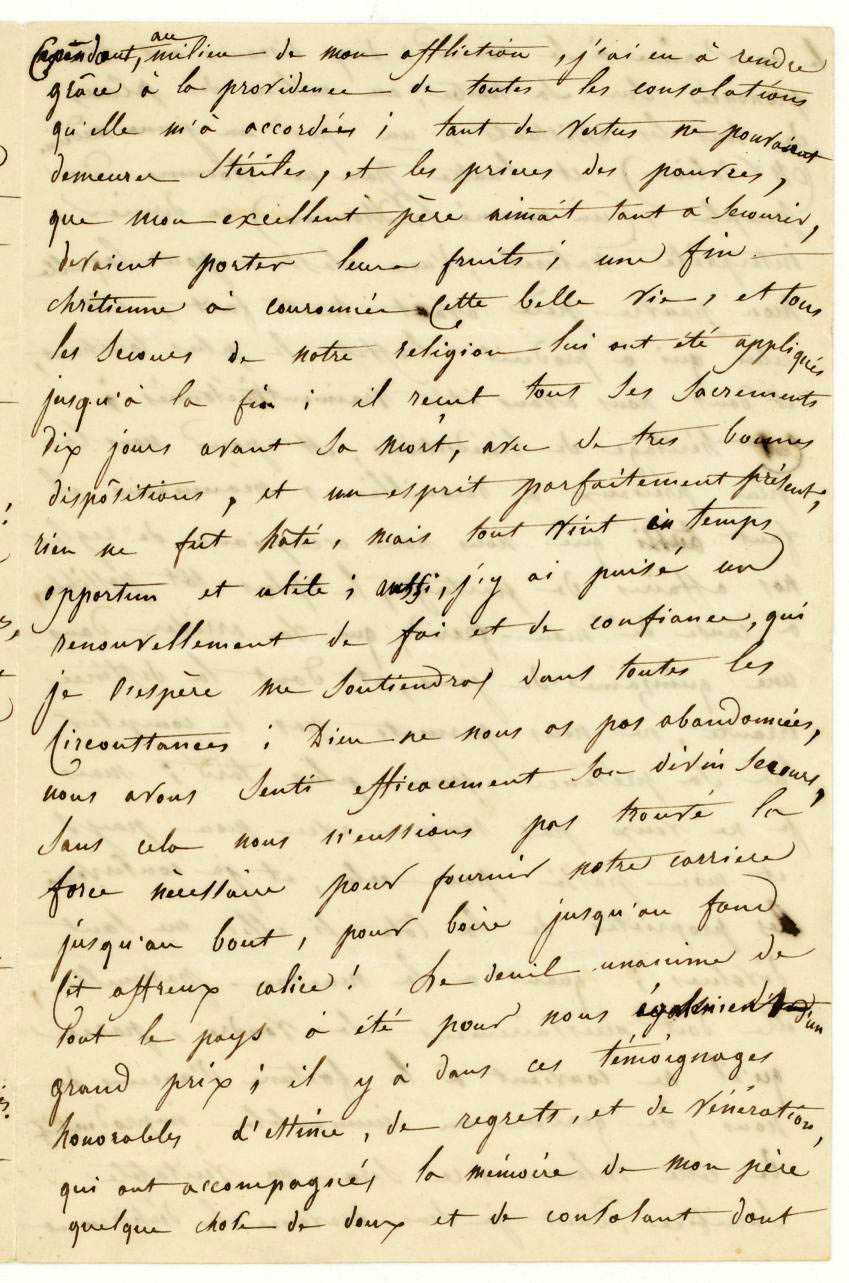 Cependant, au milieu de mon affliction, j'ai eu à rendre
grâce à la providence de toutes les consolations
qu'elle m'à accordées ; tant de vertus ne pouvaient
demeurer stériles, et les prieres des pauvres,
que mon excellent père aimait tant à secourir,
devaient porter leurs fruits ; une fin
chrétienne à couronnée cette belle vie, et tous
les secours de notre religion lui ont été appliqués
jusqu'à la fin ; il reçut tous ses sacrements
dix jours avant sa mort, avec de tres bonnes
dispositions, et un esprit parfaitement présent ;
rien ne fut hâté, mais tout vint en temps
opportun et utile ; aussi, j'y ai puisé un
renouvellement de foi et de confiance, qui
je l'espère me soutiendra dans toutes les
circonstances ; Dieu ne nous as pas abandonnées,
nous avons senti efficacement son divin secours,
sans cela nous n'eussions pas trouvé la
force nécessaire pour fournir notre carriere
jusqu'au bout, pour boire jusqu'au fond
cet affreux calice ! Le deuil unanime de
tout le pays à été pour nous également d'un
grand prix ; il y à dans ces témoignages
honorables d'estime, de regrets, et de vénération,
qui ont accompagnés la mémoire de mon père
quelque chose de doux et de consolant dont